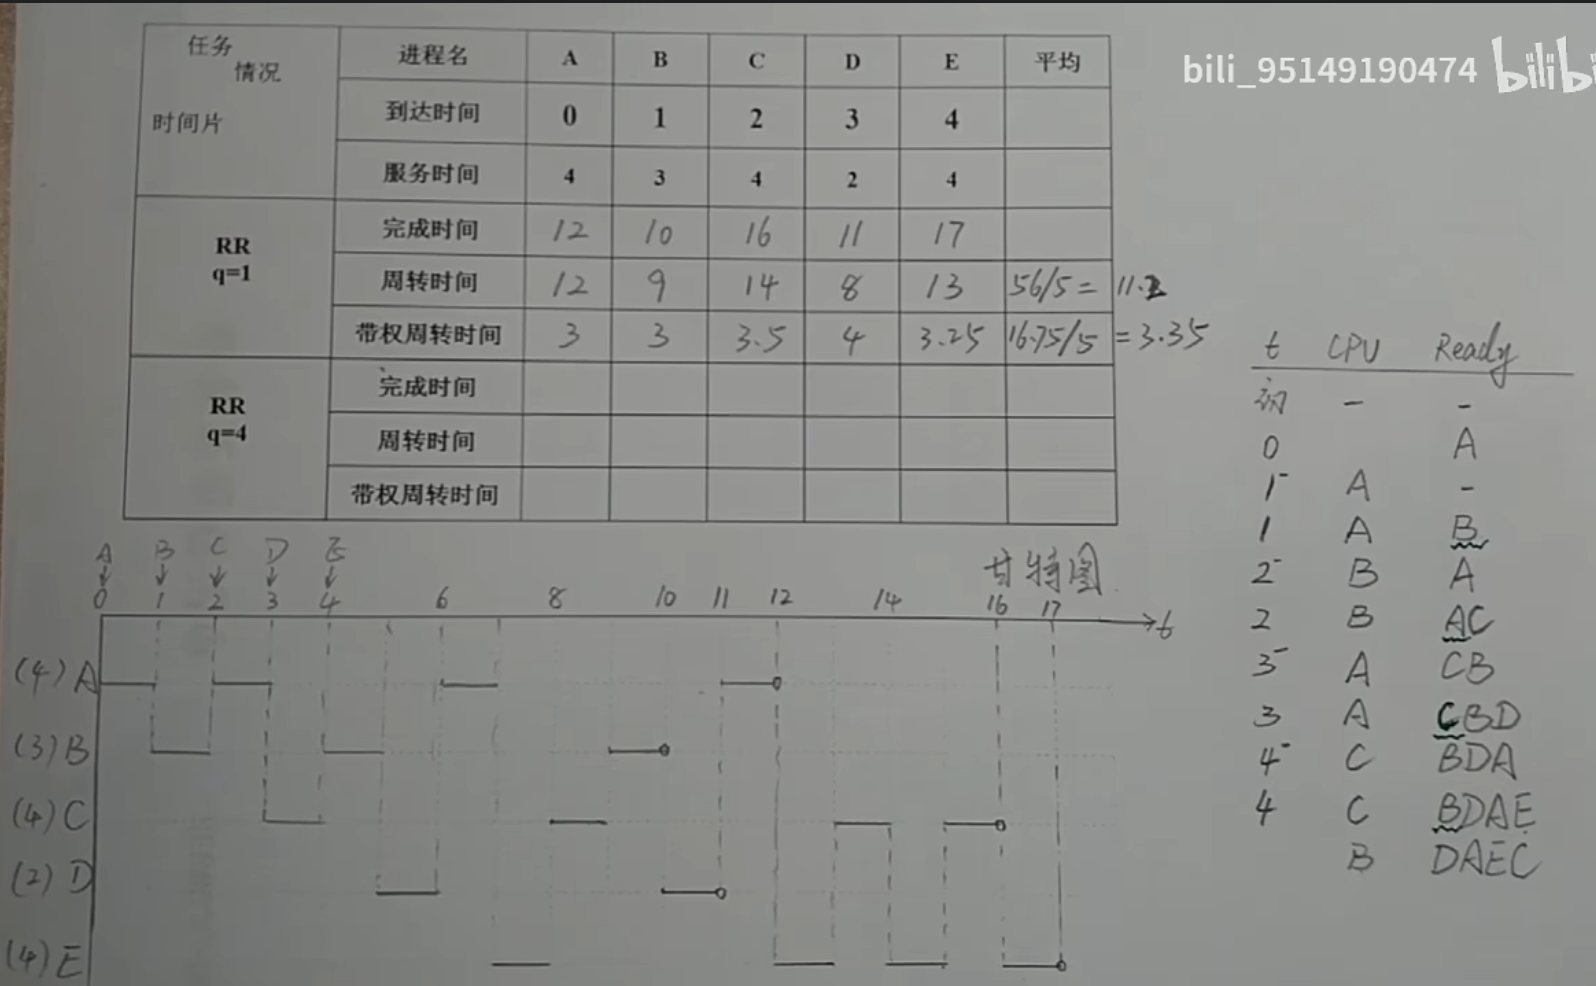 bili_95149190474 bilibi
任务
情况
时间片
进程名 A B C D E 平均
到达时间 0 1 2 3 4
服务时间 4 3 4 2 4
RR
q=1
完成时间 12 10 16 11 17
周转时间 12 9 14 8 13 56/5= 11.2
带权周转时间 3 3 3.5 4 3.25 16.75/5 =3.35
RR
q=4
完成时间
周转时间
带权周转时间
t CPU Ready
初 - -
0 A
1⁻ A -
1 A B
2⁻ B A
2 B AC
3⁻ A CB
3 A CBD
4⁻ C BDA
4 C BDAE
B DAEC
A B C D E
甘特图
0 1 2 3 4 6 8 10 11 12 14 16 17
t
(4) A
(3) B
(4) C
(2) D
(4) E